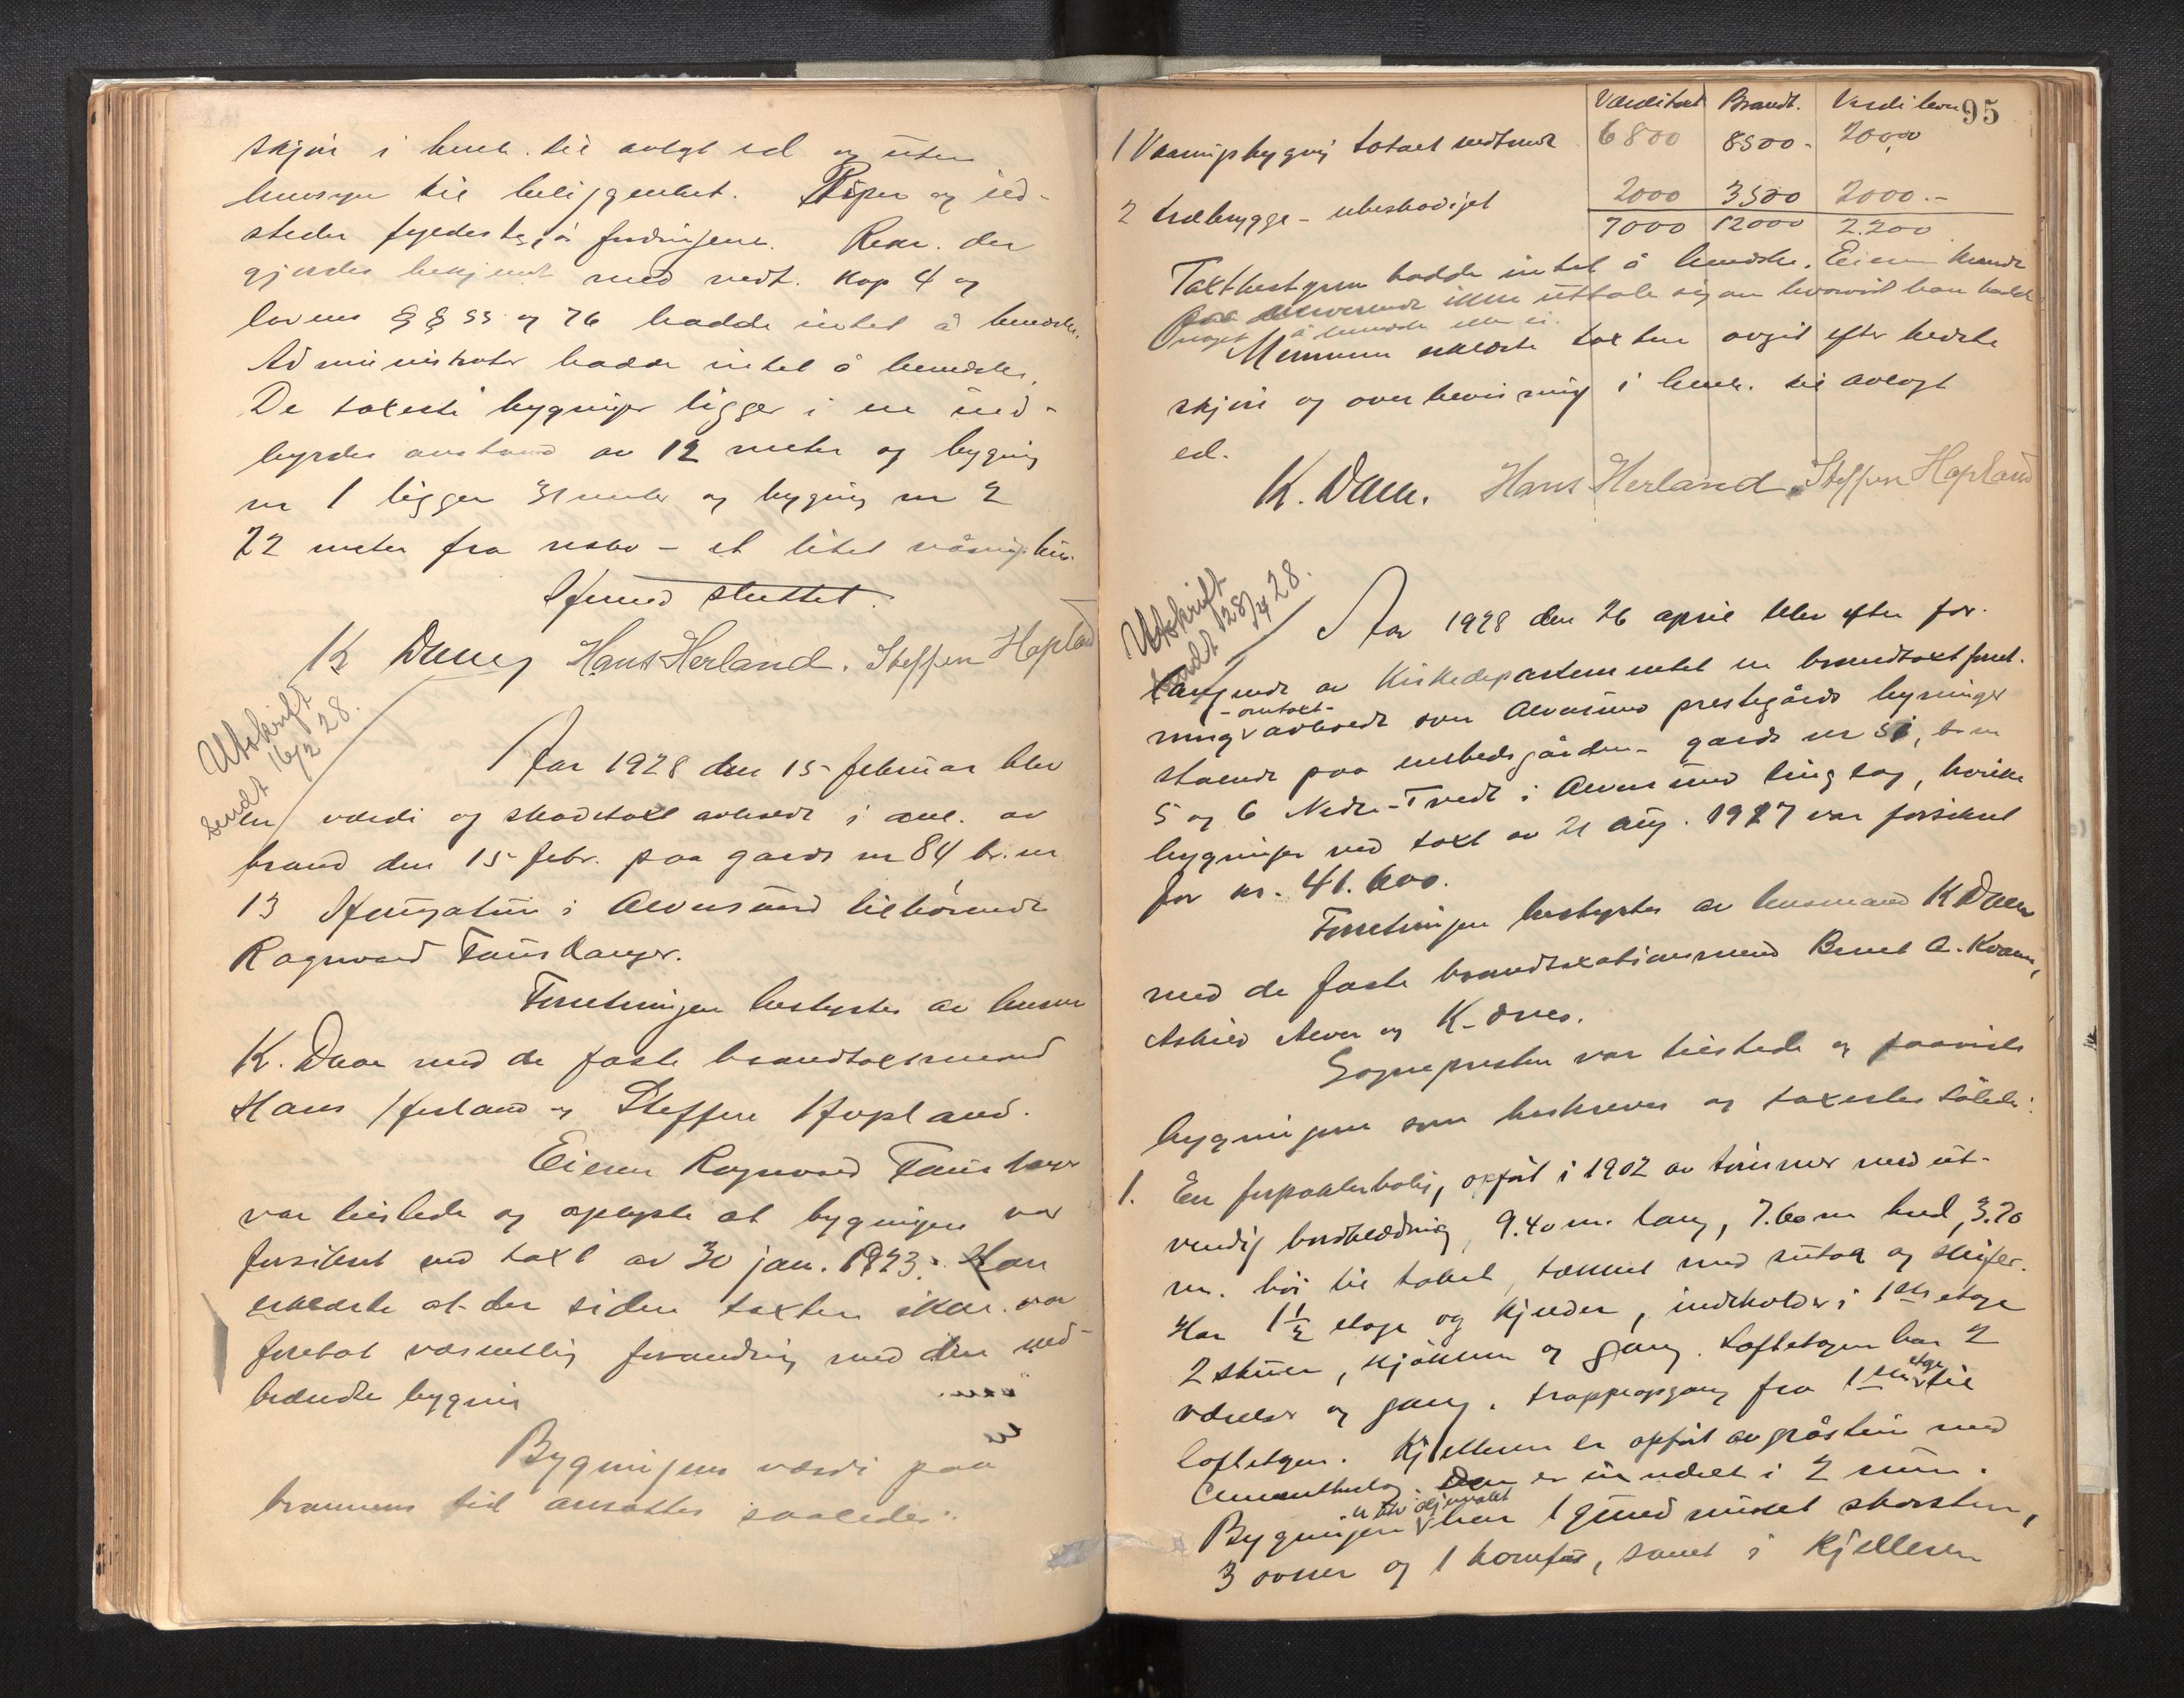 skjøn i henh. til avlagt ed og uten
hensyn til beliggenhet. Piper og ild-
steder fyldestgjør fordringene. Rekv. der
gjordes bekjendt med vedt. kap 4 og
lovens §§ 55 og 76 hadde intet å bemerke.
Administrator hadde intet å bemerke.
De takserte bygninger ligger i en ind-
byrdes avstand av 12 meter og bygning
nr 1 ligger 31 meter og bygning nr 2
22 meter fra nabo - et litet våningshus.
Hermed sluttet.
K Daae Hans Herland. Steffen Hopland
Utskrift
sendt 16/2 28.
Aar 1928 den 15 februar blev
en værdi og skadetakst avholdt i anl. av
brand den 15 febr. paa gards nr 84, br. nr
13 i Alversund tilhørende
Ragnvard Fauskanger.
Forretningen bestyrtes av lensm
K. Daae med de faste brandtakstmænd
Hans Herland og Steffen Hopland.
Eieren Ragnvard Fauskanger
var tilstede og oplyste at bygningen var
forsikret ved takst av 30 jan. 1923. Han
erklærte at der siden taksten ikke var
foretat væsentlig forandring med den ned-
brændte bygning
Bygningens værdi paa
brannens tid ansattes saaledes:
95
Værditakst Brandt. Værdi levn
1 Vaaningsbygning totalt nedbrændt 6800 8500.-
2 træbrygge - ubeskadiget 2000 3500 2000.-
7000 12000 2.200
Takstbestyreren hadde intet å bemerke. Eieren kunde
ikke uttale sig om hvorvidt han hadde
noget å bemerke eller ei.
Mennene erklærte taksten avgit efter bedste
skjøn og overbevisning i henh. til avlagt
ed.
K. Daae. Hans Herland. Steffen Hopland
Utskrift
sendt 28/4 28.
Aar 1928 den 26 april blev efter for-
langende av Kirkedepartementet en brandtakstforret-
ning - omtakst - avholdt over Alversund prestegårds bygninger
staaende paa embedsgården - gards nr 51, br nr
5 og 6 Nedre-Tvedt i Alversund tinglag, hvilke
bygninger ved takst av 21 aug. 1927 var forsikret
for kr. 41.600.
Forretningen bestyrtes av lensmand K Daae
med de faste brandtakstmænd Bernt A. Kvamme,
Askild Alver og K.
Sogneprsten var tilstede og paaviste
bygningene som beskreves og takseres således:
1. En forpakterbolig, opført i 1902 av tømmer med ut-
vendig bordklædning, 9.40 m. lang, 7.60 m bred, 3.70
m. høi til taket, tækket med sutak og skifer.
Har 1½ etage og kjelder, indeholder i 1ste etage
2 stuer, kjøkken og gang. Loftetagen har 2
værelser og gang, trappeopgang fra 1ste etage til
loftetagen. Kjelleren er opført av gråstein med
Den er inndelt i 2 rum.
Bygningen er oljemalet har 1 grundmuret skorsten,
3 ovner og 1 komfur, samt i kjelleren